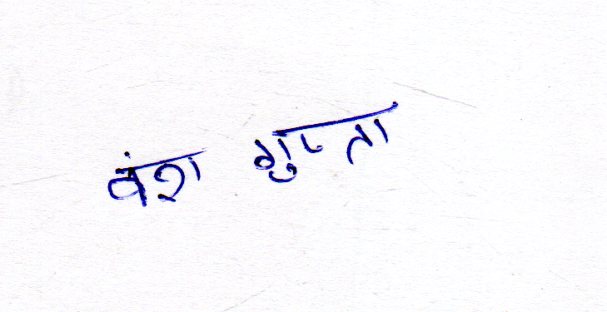 वंश गुप्ता